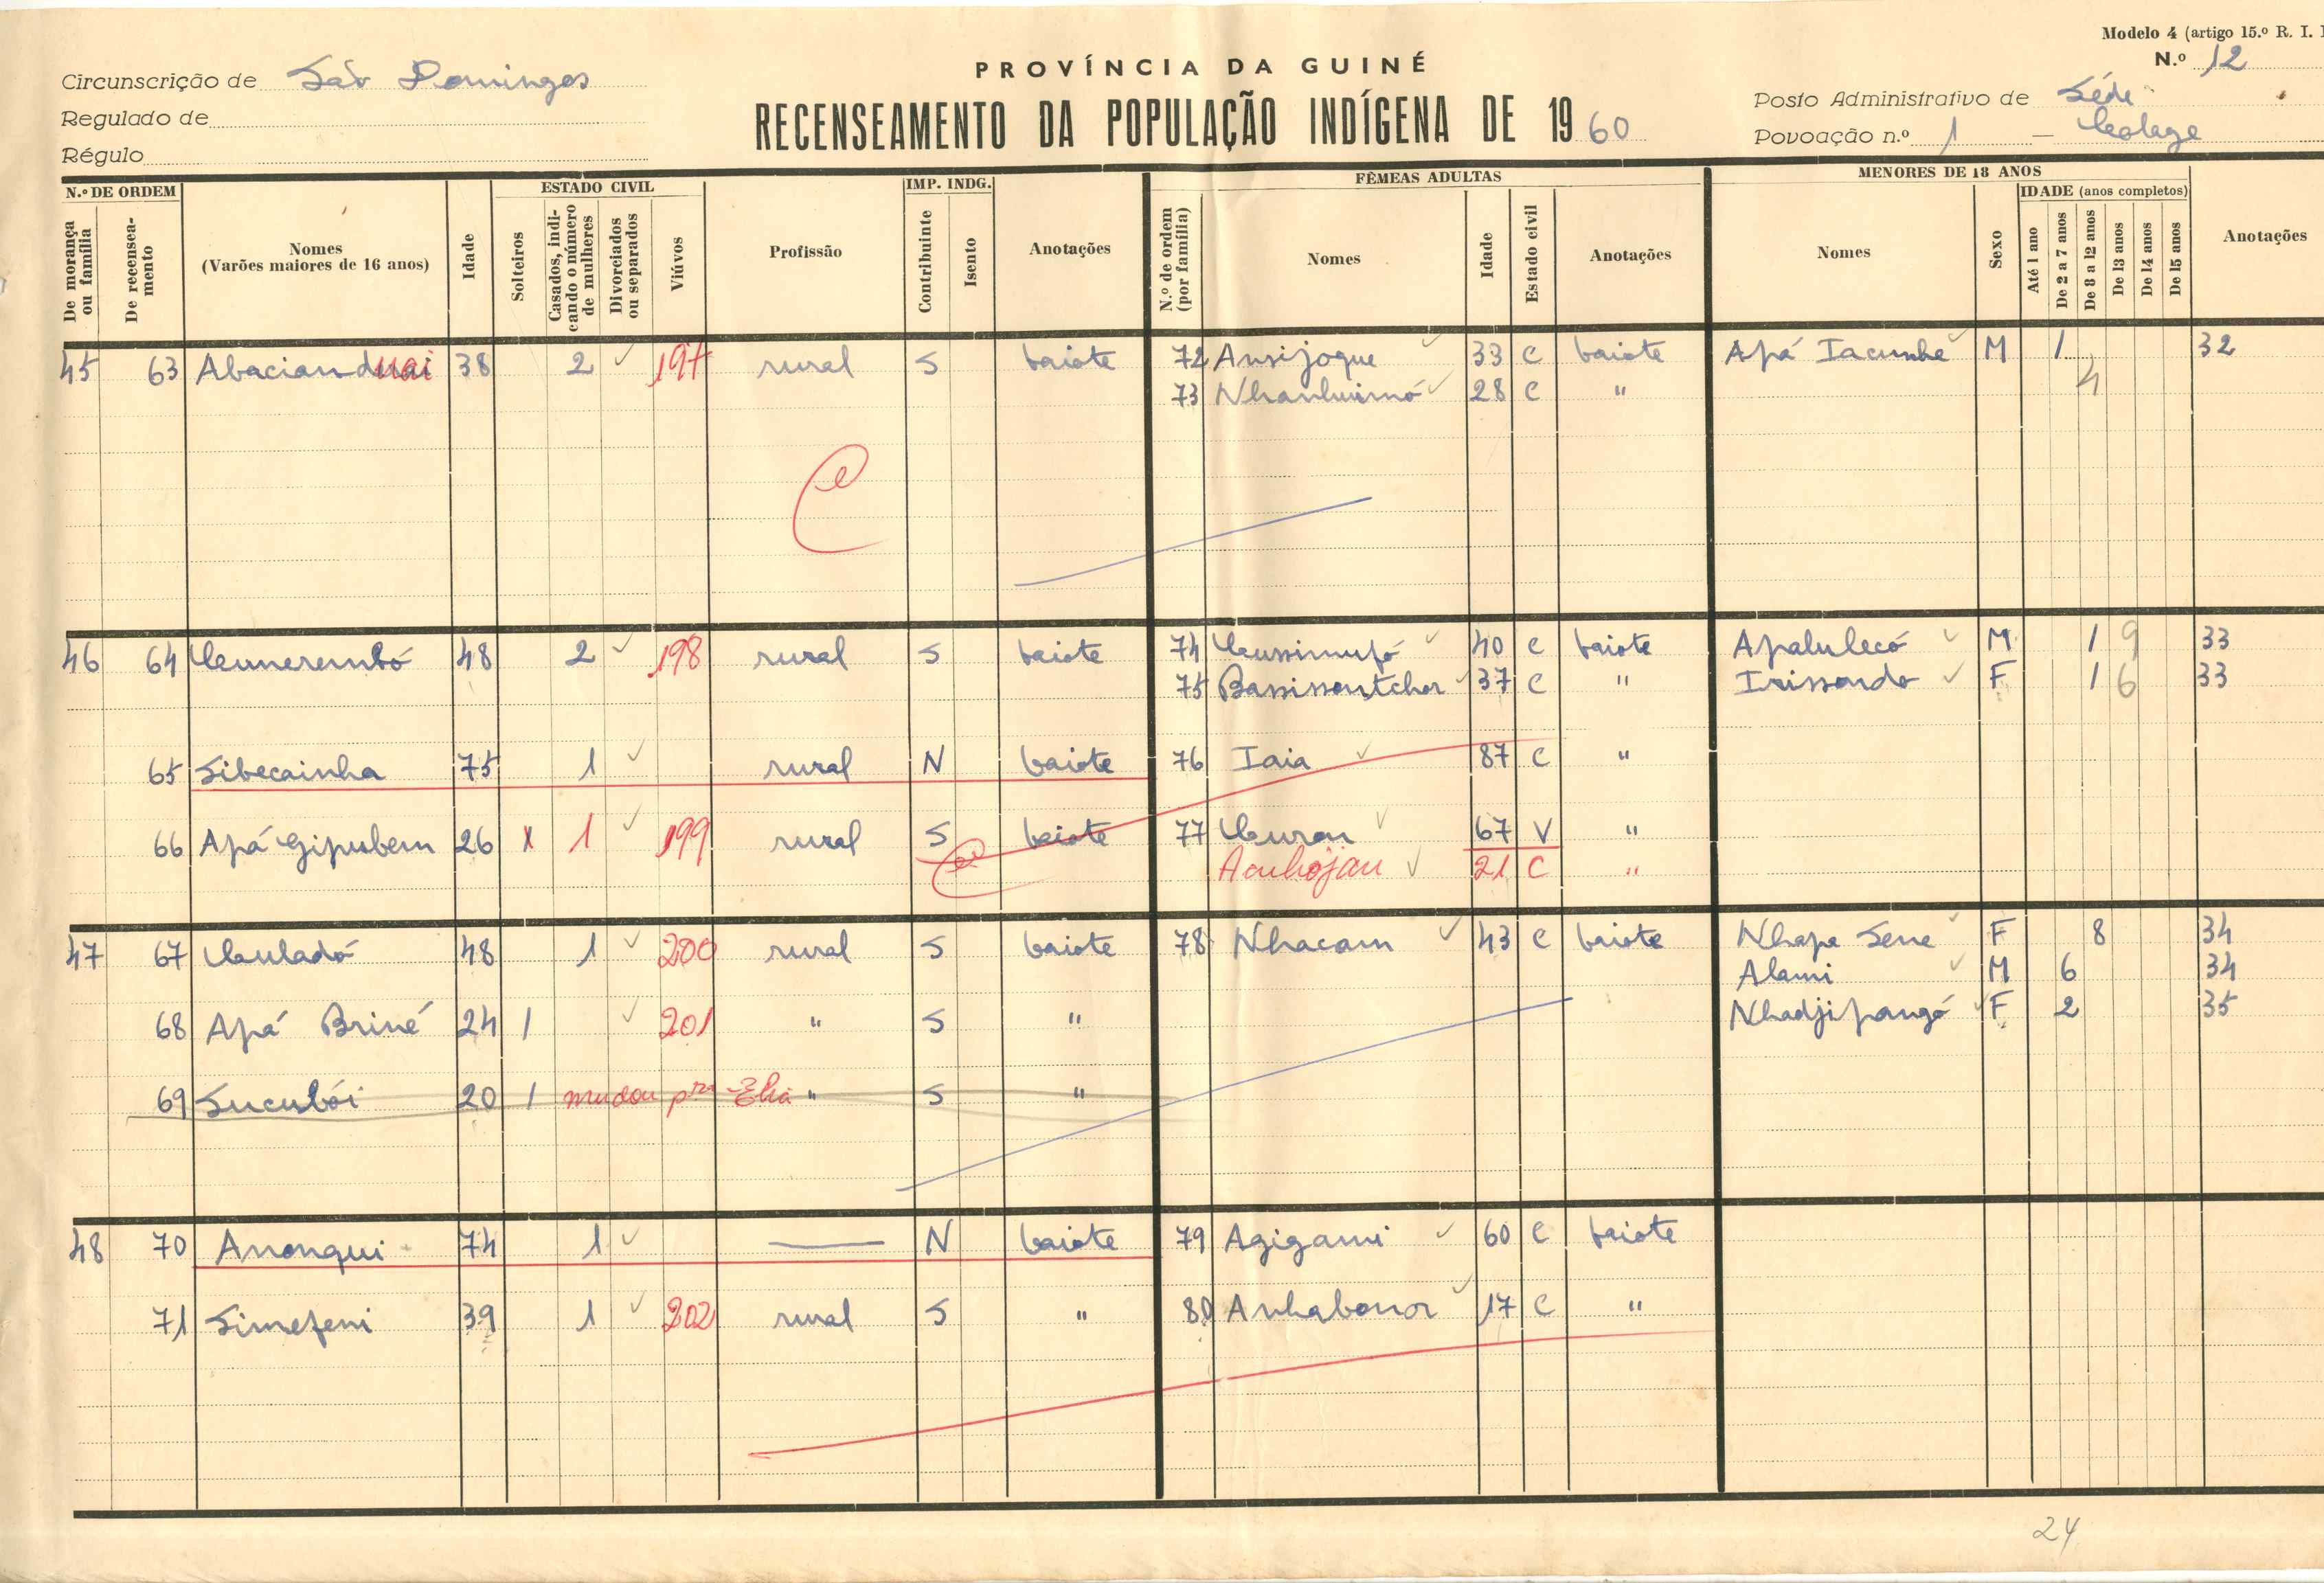 Modelo 4 (artigo 15.º R. I.
PROVÍNCIA DA GUINÉ
N.º 12
Circunscrição de São Domingos
RECENSEAMENTO DA POPULAÇÃO INDÍGENA DE 1960
Posto Administrativo de Séde
Regulado de
Povoação n.º 1 —
Régulo
N.º DE ORDEM
De morança ou família
De recenseamento
Nomes (Varões maiores de 16 anos)
Idade
ESTADO CIVIL
Solteiros
Casados, indicando o número de mulheres
Divorciados ou separados
Viúvos
Profissão
IMP. INDG.
Contribuinte
Isento
Anotações
FÊMEAS ADULTAS
N.º de ordem (por família)
Nomes
Idade
Estado civil
Anotações
MENORES DE 18 ANOS
Nomes
Sexo
IDADE (anos completos)
Até 1 ano
De 2 a 7 anos
De 8 a 12 anos
De 13 anos
De 14 anos
De 15 anos
Anotações
45 63 Abacianduai 38 2 ✓ 197 rural S baiote 72 Ansijoque ✓ 33 C baiote Apá Iacunhe ✓ M 1 32
73 Nhanhuimó ✓ 28 C " 4
46 64 48 2 ✓ 198 rural S baiote 74 ✓ 40 C baiote Apalulecó ✓ M 1 9 33
75 Bassissontchor ✓ 37 C " Irissondo ✓ F 1 6 33
65 Sibecainha 75 1 ✓ rural N baiote 76 Iaia ✓ 87 C "
66 Apá Gipubem 26 x 1 ✓ 199 rural S baiote 77 ✓ 67 V "
Anhojau ✓ 21 C "
47 67 48 1 ✓ 200 rural S baiote 78 Nhacam ✓ 43 C baiote Nhapa Sene ✓ F 8 34
Alami ✓ M 6 34
68 Apá Briné 24 1 ✓ 201 " S " Nhadjipangó ✓ F 2 35
69 Sucubói 20 1 mudou pra Elia " S "
48 70 Anonqui 74 1 ✓ — N baiote 79 Agigami ✓ 60 C baiote
71 Simefeni 39 1 ✓ 202 rural S " 80 Anhabonor ✓ 17 C "
24